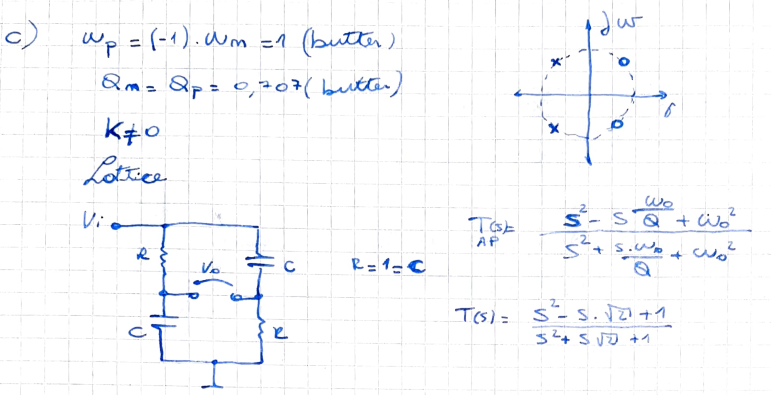 c) ωp = (-1). ωm = 1 (butter)
Qm = Qp = 0,707 (butter)
K≠0
Lattice
jω
σ
Vi
R
C
Vo
C
R
R = 1 = C
T(s)AP = (s² - s ω₀/Q + ω₀²) / (s² + s.ω₀/Q + ω₀²)
T(s) = (s² - s.√2 + 1) / (s² + s√2 + 1)